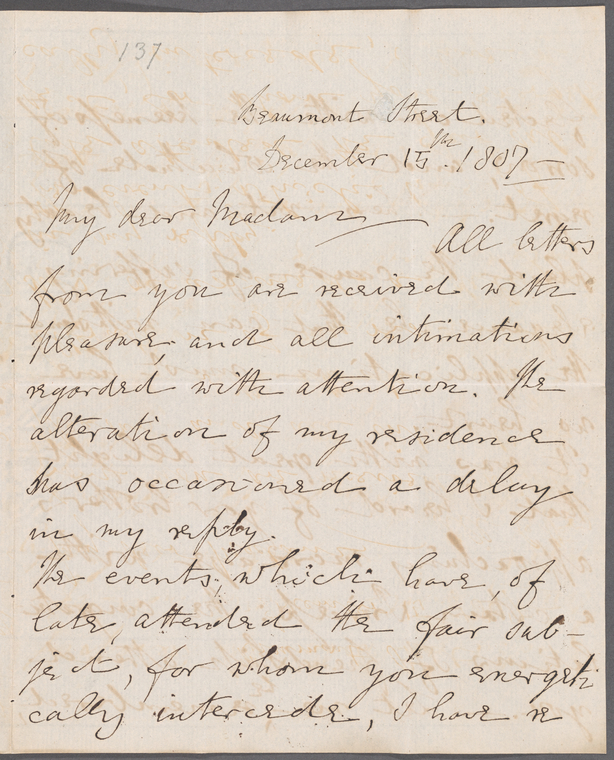 137
Beaumont Street.
December 15th. 1807—
My dear Madam
All letters
from you are received with
pleasure, and all intimations
regarded with attention. The
alteration of my residence
has occasioned a delay
in my reply.
The events, which have, of
late, attended the fair sub-
ject, for whom you energeti
cally intercede, I have re